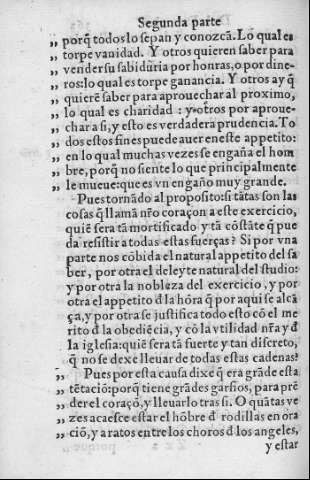 Segunda parte
„ porq̃ todos lo sepan y conozcã. Lo qual es
„ torpe vanidad. Y otros quieren saber para
„ vender su sabiduria por honras, o por dine-
„ ros: lo qual es torpe ganancia. Y otros ay q̃
„ quierẽ saber para aprouechar al proximo,
„ lo qual es charidad : y otros por aproue-
„ char a si, y esto es verdadera prudencia. To
„ dos estos fines puede auer en este appetito:
„ en lo qual muchas vezes se engaña el hom
„ bre, porq̃ no siente lo que principalmente
„ le mueue: que es vn engaño muy grande.
Pues tornãdo al proposito si tãtas son las
cosas q̃ llamã nr̃o coraçon a este exercicio,
quiẽ sera tã mortificado y tã cõstãte q̃ pue
da resistir a todas estas fuerças? Si por vna
parte nos cõbida el natural appetito del sa
ber, por otra el deleyte natural del studio:
y por otra la nobleza del exercicio, y por
otra el appetito đ la hõra q̃ por aqui se alcã
ça, y por otra se justifica todo esto cõ el me
rito đ la obediẽcia, y cõ la vtilidad nr̃a y đ
la iglesia: quiẽ sera tã fuerte y tan discreto,
q̃ no se dexe lleuar de todas estas cadenas?
„ Pues por esta causa dixe q̃ era grãde esta
„ tẽtaciõ: porq̃ tiene grãdes garfios, para prẽ
„ der el coraçõ, y lleuarlo tras si. O quãtas ve
„ zes acaesce estar el hõbre đ rodillas en ora
„ ciõ, y a ratos entre los choros đ los angeles,
y estar